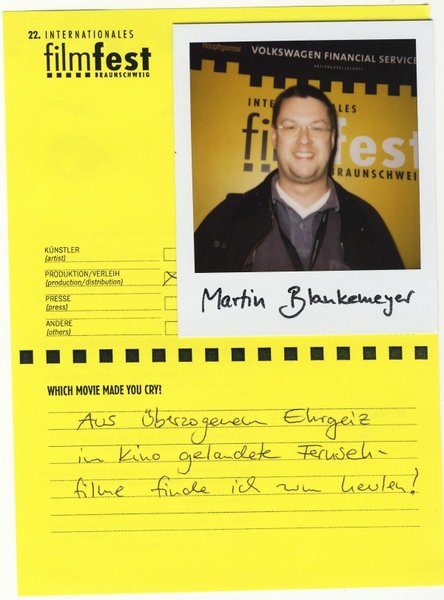 22. INTERNATIONALES
filmfest
BRAUNSCHWEIG
Hauptsponsor VOLKSWAGEN FINANCIAL SERVICE
AKTIENGESELLSCHAFT
INTE ALES
filmfest
BRAUNSCHWEIG
Martin Blankemeyer
KÜNSTLER
(artist)
PRODUKTION/VERLEIH
(production/distribution)
PRESSE
(press)
ANDERE
(others)
WHICH MOVIE MADE YOU CRY?
Aus überzogenem Ehrgeiz
im Kino gelandete Fernseh-
filme finde ich zum heulen!